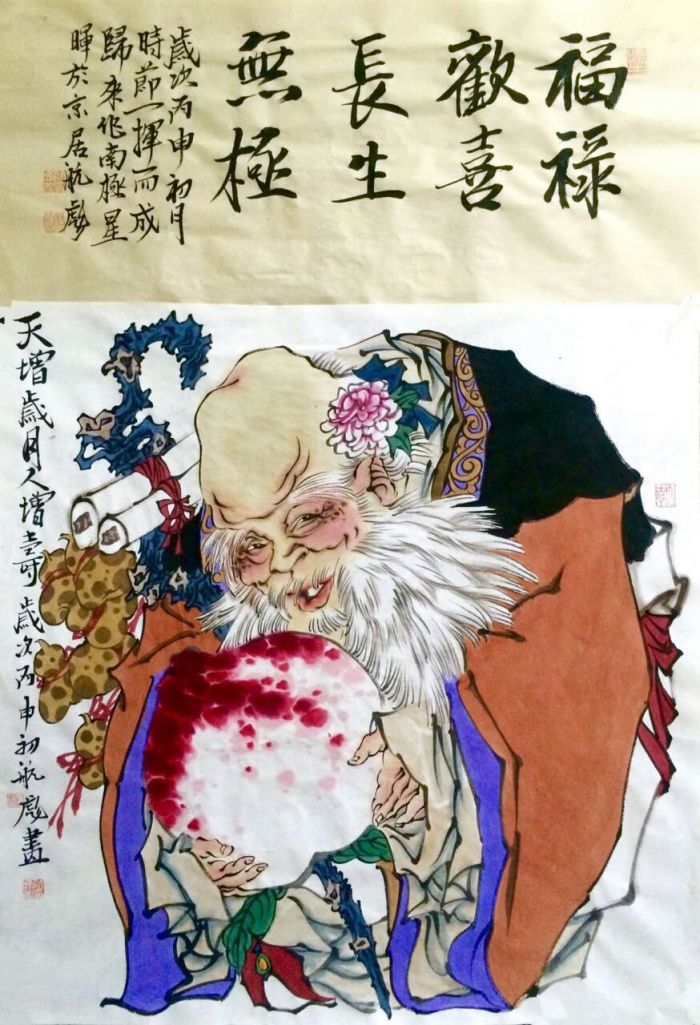 福祿
歡喜
長生
無極
歲次丙申初月
時節一揮而成
歸來作南極星
暉於京居航彪
天增歲月人增壽歲次丙申初航彪畫